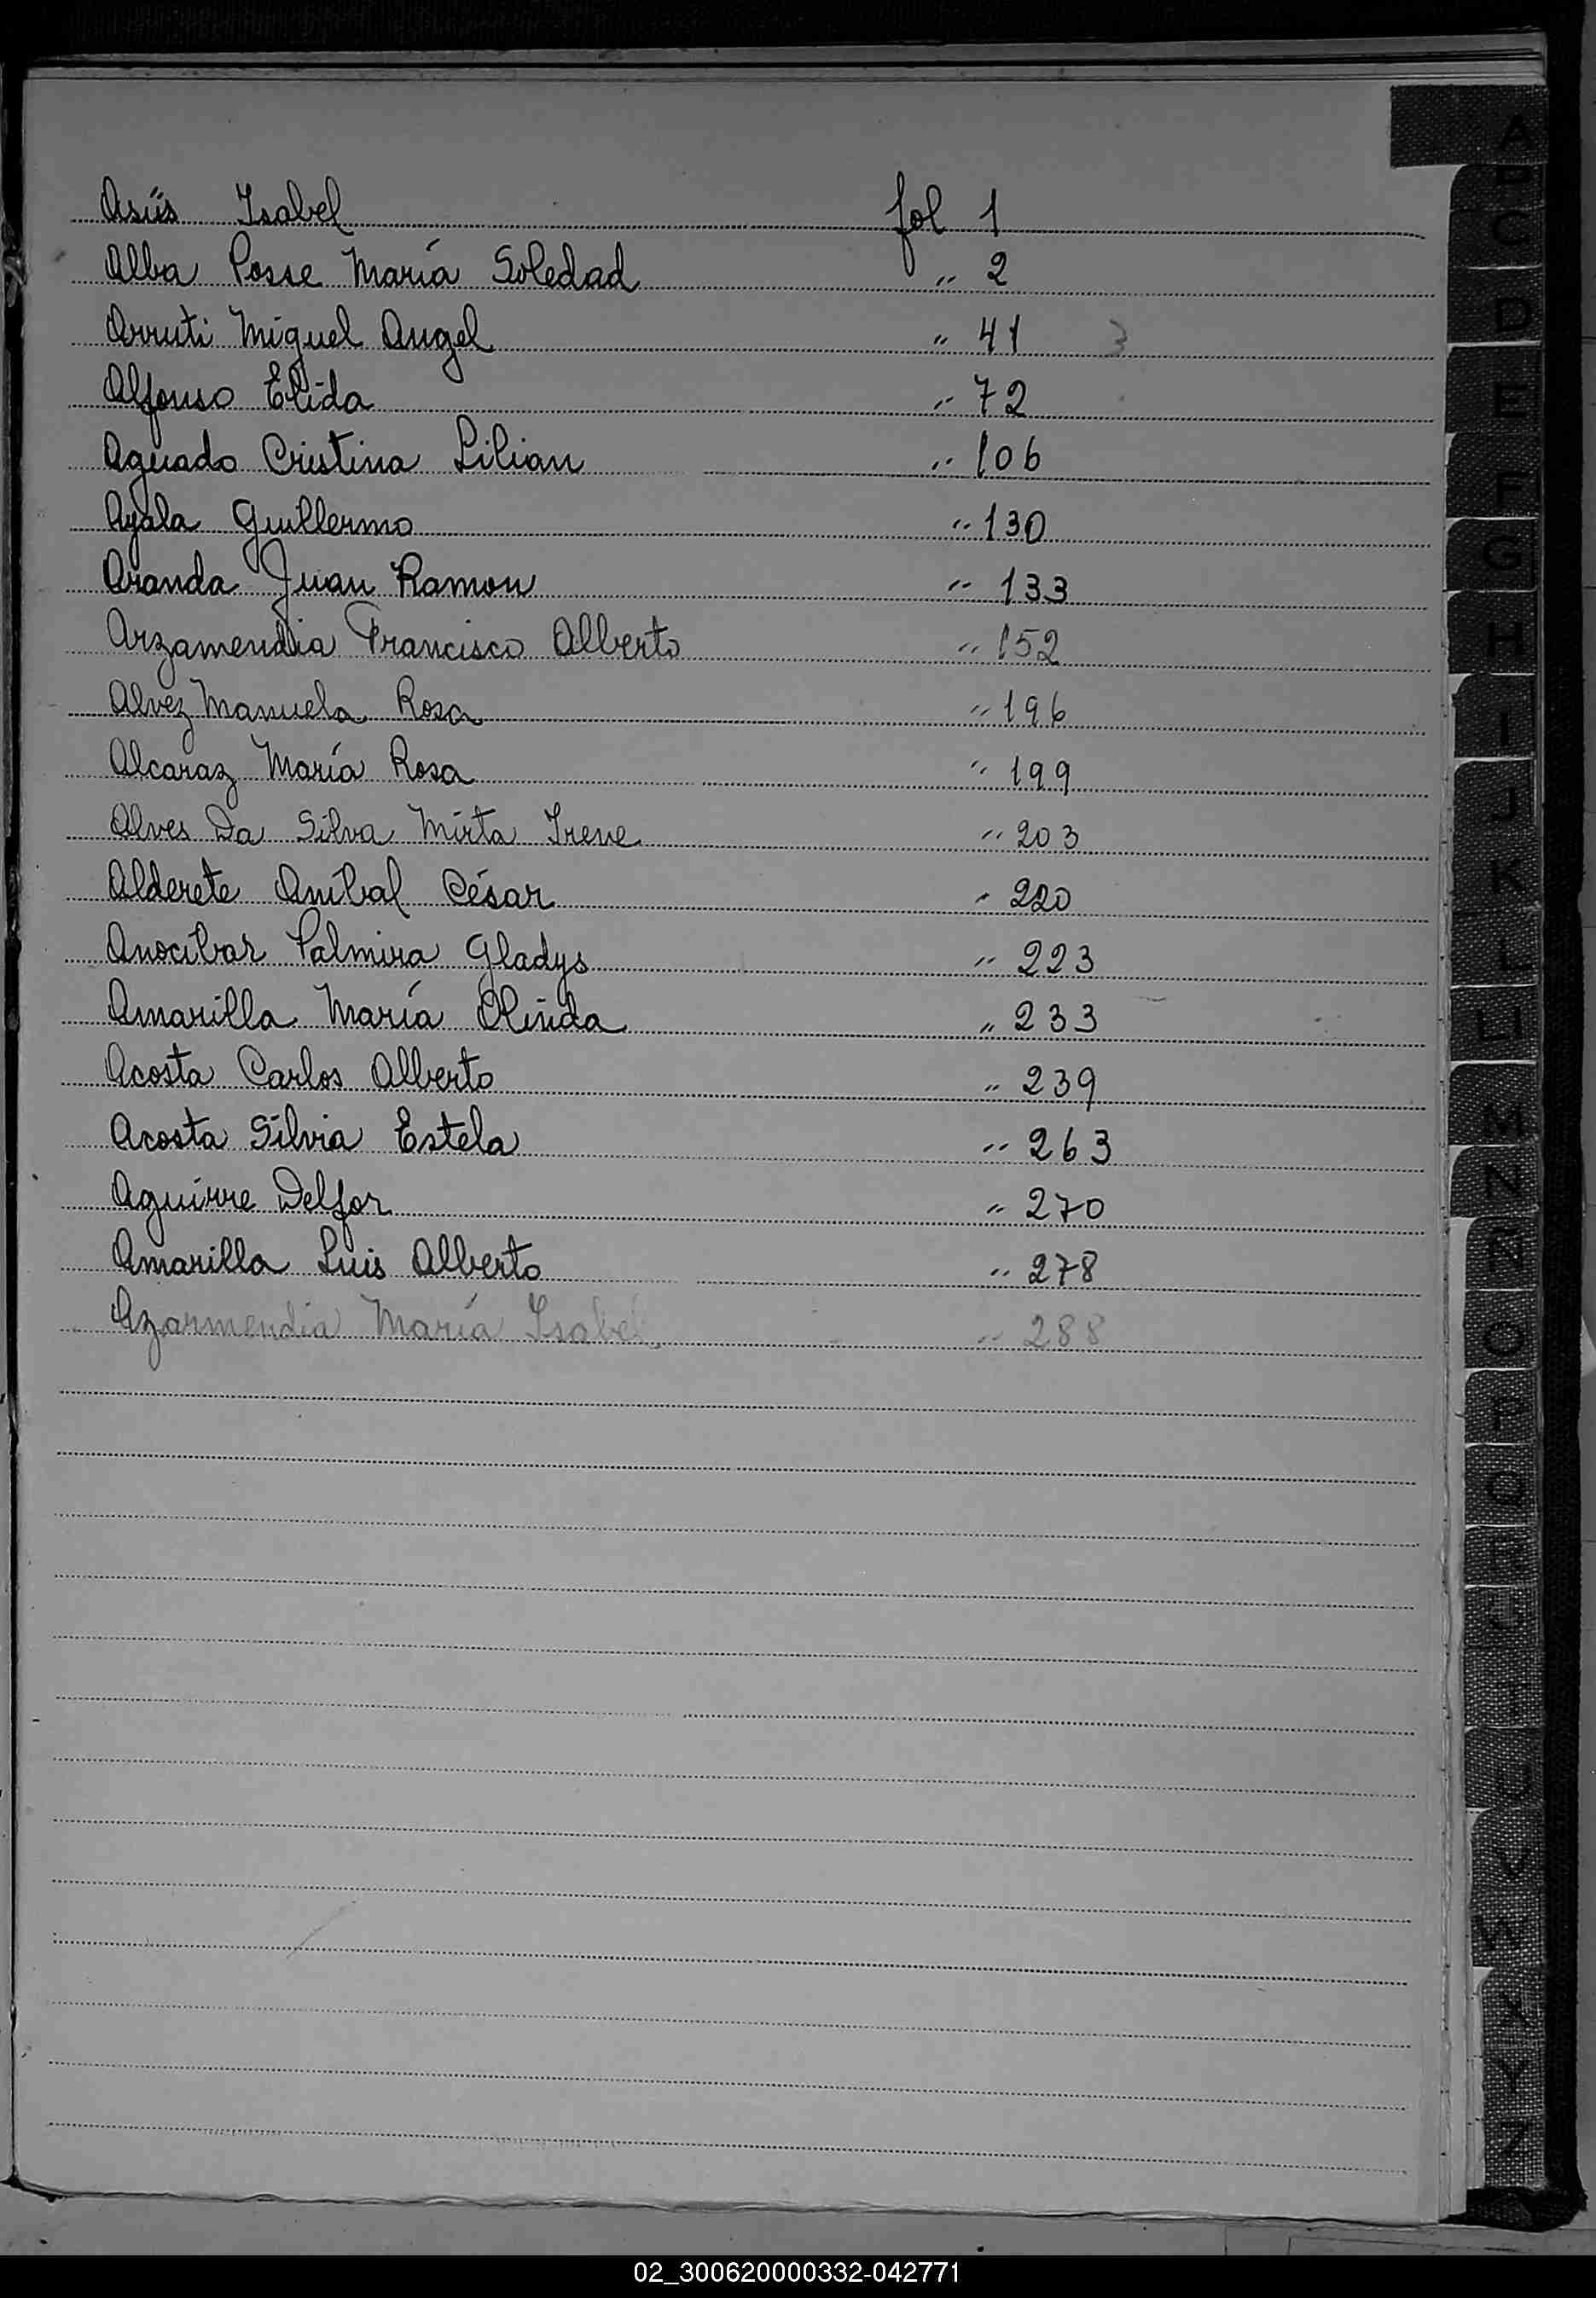 Asiis Isabel fol 1
Alba Posse María Soledad " 2
Arruti Miguel Angel " 41 3
Alfonso Elida " 72
Aguado Cristina Lilian " 106
Ayala Guillermo " 130
Aranda Juan Ramon " 133
Arzamendia Francisco Alberto " 152
Alvez Manuela Rosa " 196
Alcaraz María Rosa " 199
Alves Da Silva Mirta Irene " 203
Alderete Aníbal César " 220
Anocíbar Palmira Gladys " 223
Amarilla María Olinda " 233
Acosta Carlos Alberto " 239
Acosta Silvia Estela " 263
Aguirre Delfor " 270
Amarilla Luis Alberto " 278
Azarmendia María Isabel " 288
A
C
D
E
F
G
H
I
J
K
L
M
N
Ñ
O
P
Q
R
U
V
W
X
Y
Z
02_300620000332-042771